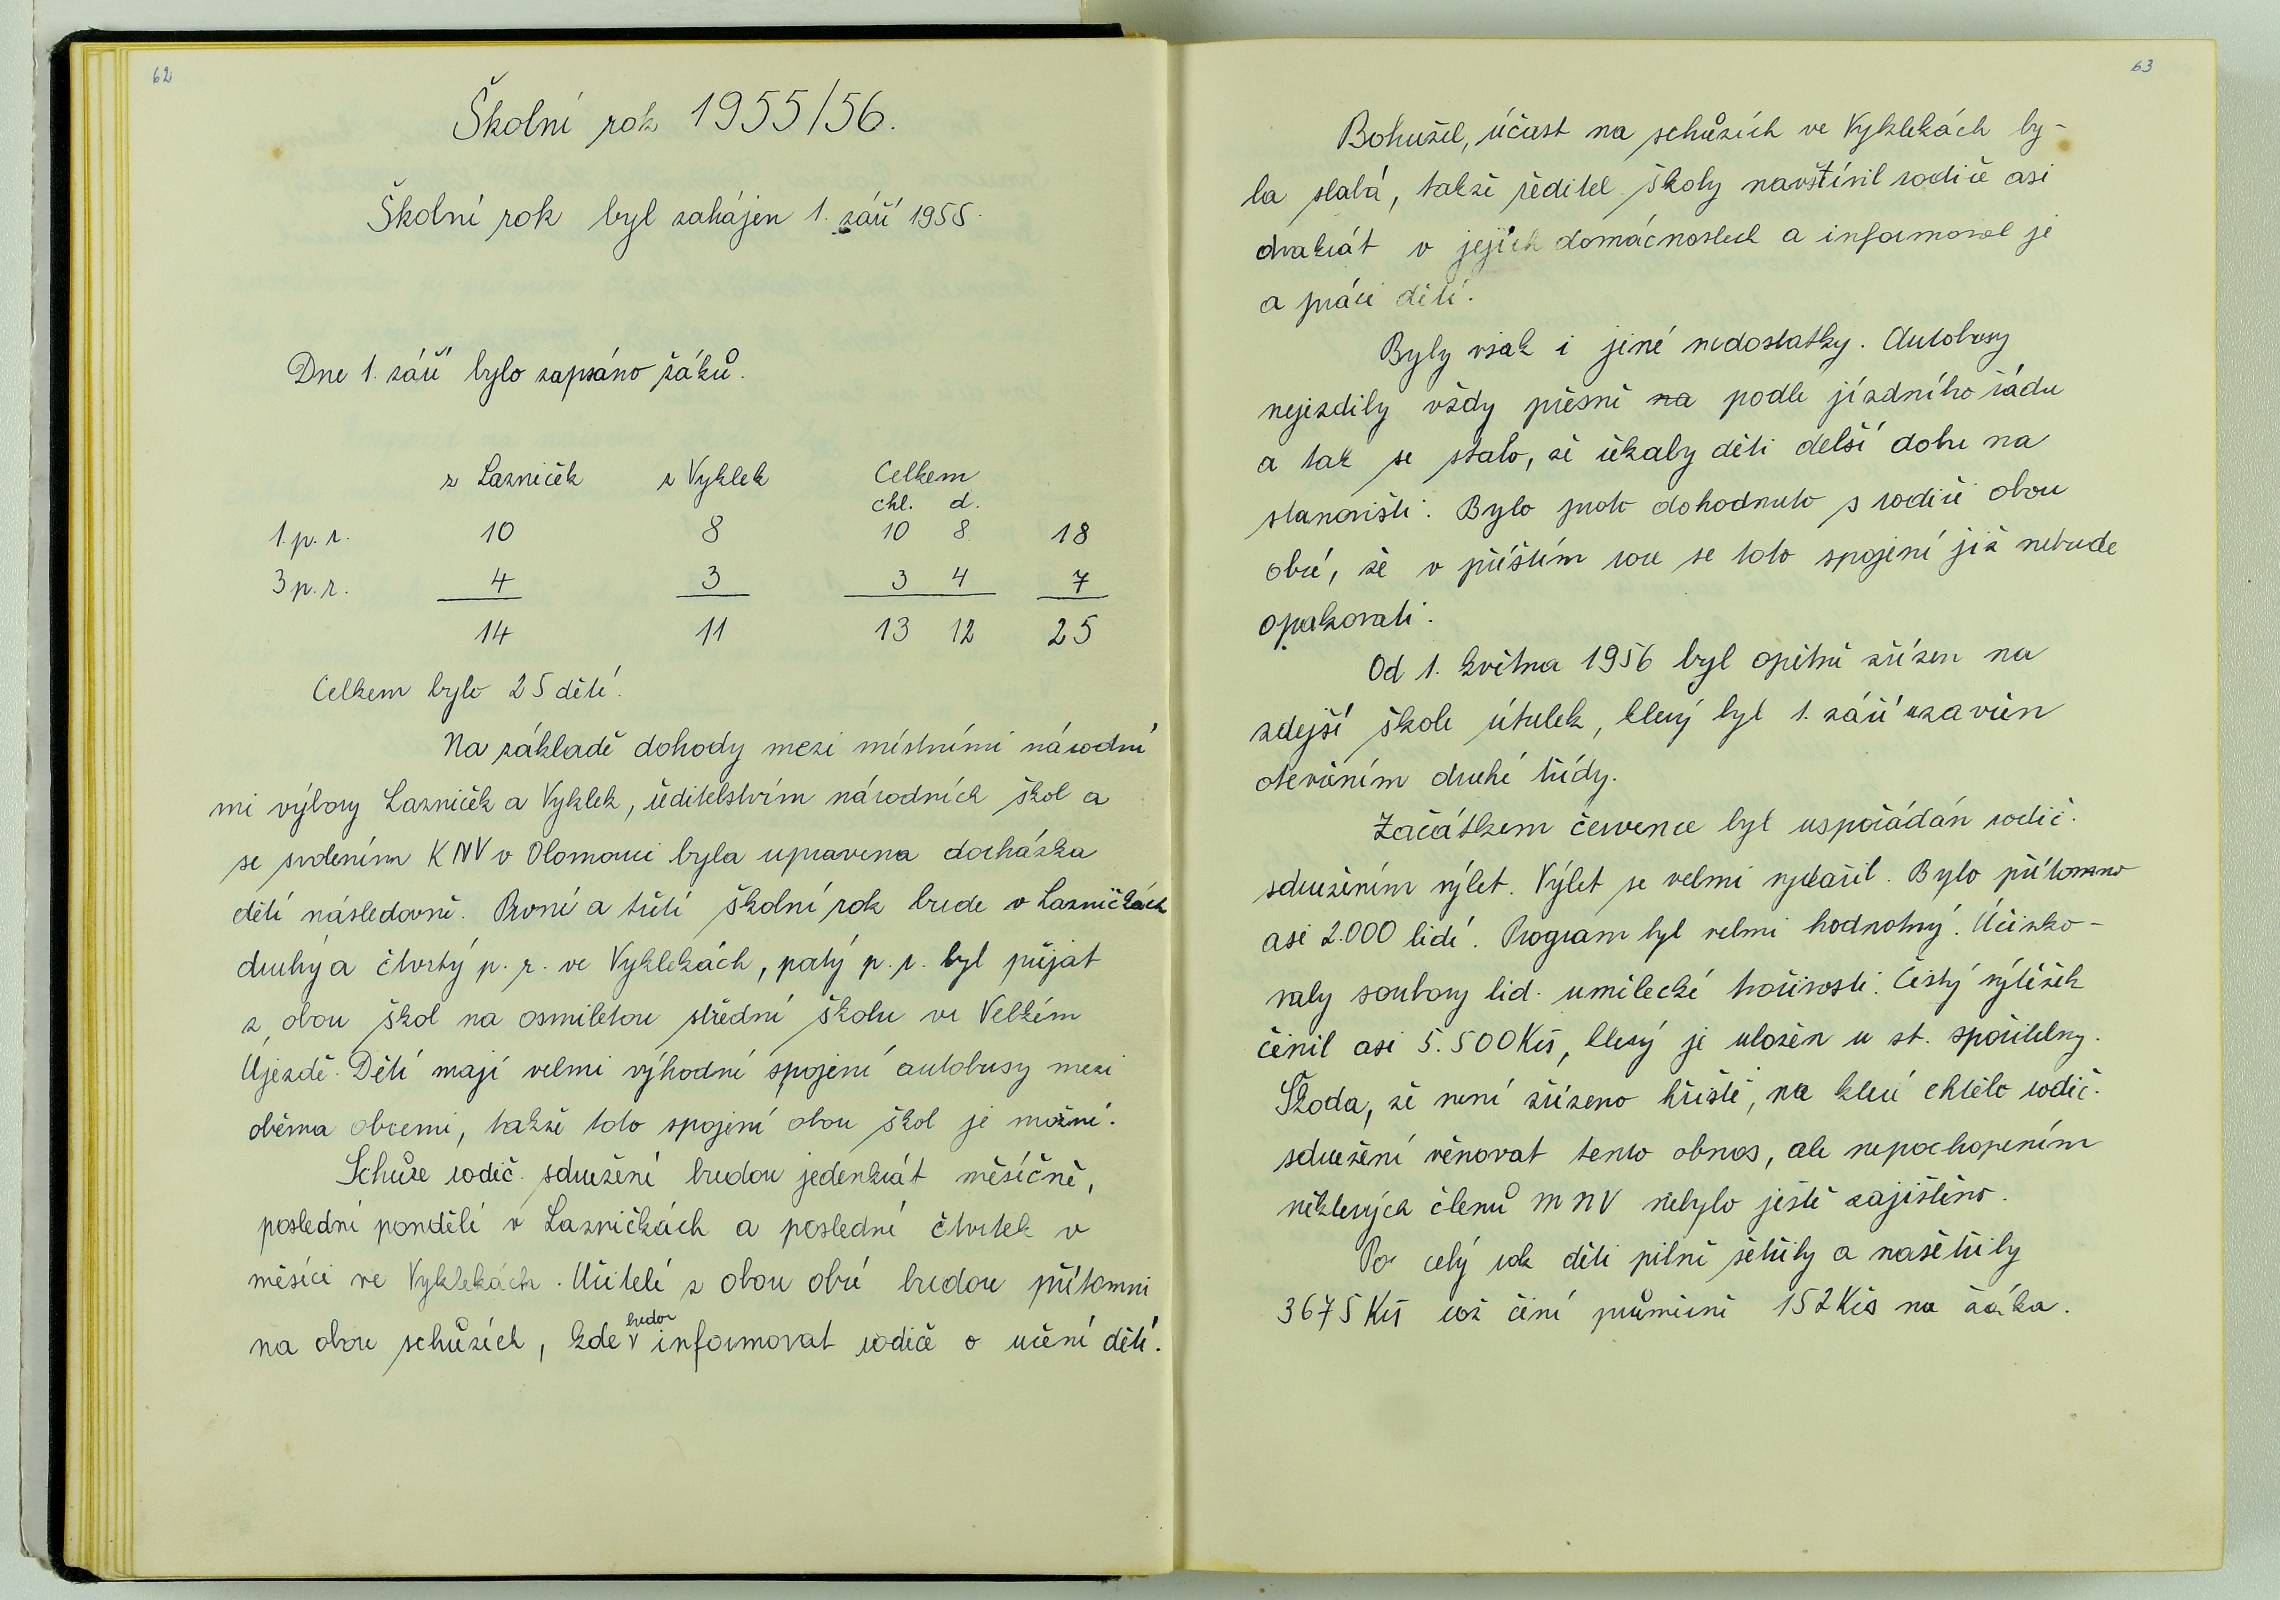 62
Školní rok 1955/56.
Školní rok byl zahájen 1. září 1955.
Dne 1. září bylo zapsáno žáků.
z Lazniček z Vyklek Celkem
chl. d.
1. p. r. 10 8 10 8 18
3 p. r. 4 3 3 4 7
14 11 13 12 25
Celkem bylo 25 dětí.
Na základě dohody mezi místními národní
mi výbory Lazniček a Vyklek, ředitelstvím národních škol a
se svolením KNV v Olomouci byla upravena docházka
dětí následovně. První a třetí školní rok bude v Lazničkách
druhý a čtvrtý p. r. ve Vyklekách, patý p. r. byl přijat
z obou škol na osmiletou střední školu ve Velkém
Újezdě. Děti mají velmi výhodné spojení autobusy mezi
oběma obcemi, takže toto spojení obou škol je možné.
Schůze rodič. sdružení budou jedenkrát měsíčně,
poslední pondělí v Lazničkách a poslední čtvrtek v
měsíci ve Vyklekách. Učitelé z obou obcí budou přítomni
na obou schůzích, kde budou informovat rodiče o učení dětí.
63
Bohužel, účast na schůzích ve Vyklekách by-
la slabá, takže ředitel školy navštívil rodiče asi
dvakrát v jejich domácnostech a informoval je
a práci dětí.
Byly však i jiné nedostatky. Autobusy
nejezdily vždy přesně na podle jízdního řádu
a tak se stalo, že čekaly děti delší dobu na
stanovišti. Bylo proto dohodnuto s rodiči obou
obcí, že v příštím roce se toto spojení již nebude
opakovati.
Od 1. května 1956 byl opětně zřízen na
zdejší škole útulek, který byl 1. září uzavřen
otevřením druhé třídy.
Začátkem července byl uspořádán rodič.
sdružením výlet. Výlet se velmi vydařil. Bylo přítomno
asi 2.000 lidí. Program byl velmi hodnotný. Účinko-
valy soubory lid. umělecké tvořivosti. Čistý výtěžek
činil asi 5.500 Kčs, který je uložen u st. spořitelny.
Škoda, že není zřízeno hřiště, na které chtělo rodič.
sdružení věnovat tento obnos, ale nepochopením
některých členů MNV nebylo ještě zajištěno.
Po celý rok děti pilně šetřily a našetřily
3675 Kčs což činí průměrně 152 Kčs na žáka.